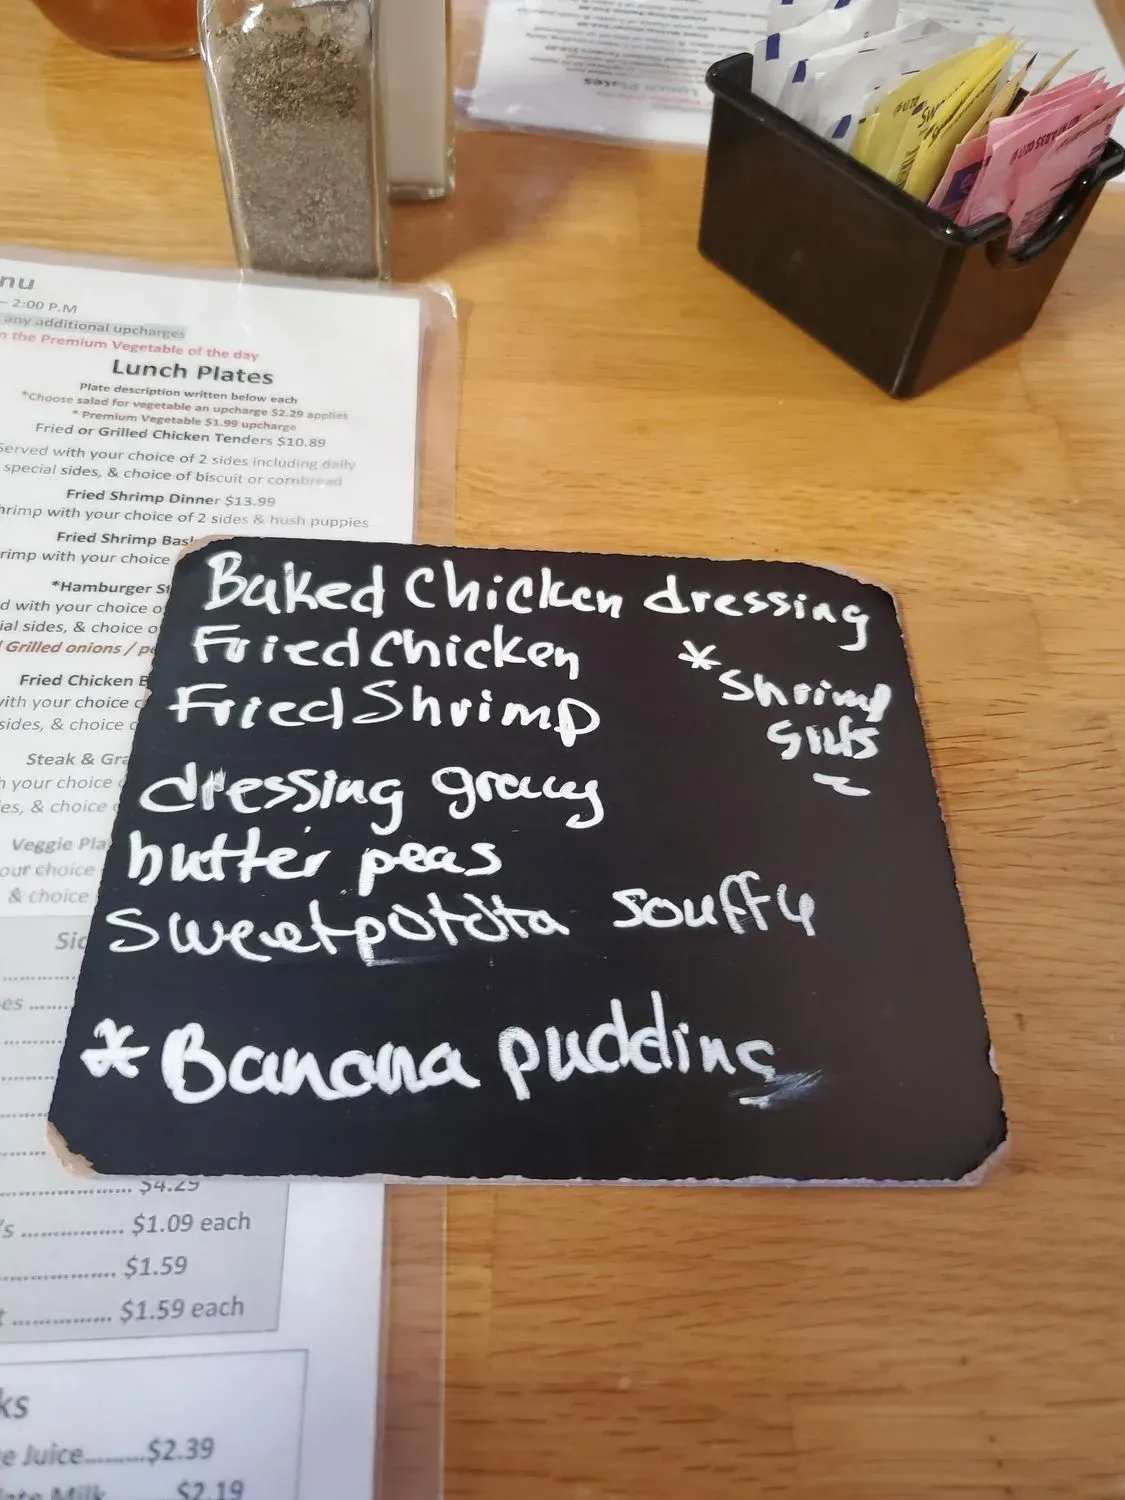 Lunch Plates
nu
– 2:00 P.M
any additional upcharges
the Premium Vegetable of the day
Lunch Plates
Plate description written below each
*Choose salad for vegetable an upcharge $2.29 applies
* Premium Vegetable $1.99 upcharge
Fried or Grilled Chicken Tenders $10.89
Served with your choice of 2 sides including daily
special sides, & choice of biscuit or cornbread
Fried Shrimp Dinner $13.99
hrimp with your choice of 2 sides & hush puppies
Fried Shrimp Bas
rimp with your choice
*Hamburger St
d with your choice o
ial sides, & choice o
Grilled onions / pe
Fried Chicken B
with your choice
sides, & choice
Steak & Gra
h your choice
es, & choice
Veggie Pla
our choice
& choice
Sid
es ........
Baked Chicken dressing
Fried Chicken
Fried Shrimp
* Shrimp
Grits
dressing gravy
butter peas
Sweetpotota souffy
* Banana pudding
............ $4.29
's ................ $1.09 each
.................. $1.59
t ............... $1.59 each
ks
e Juice.........$2.39
late Milk $2.19